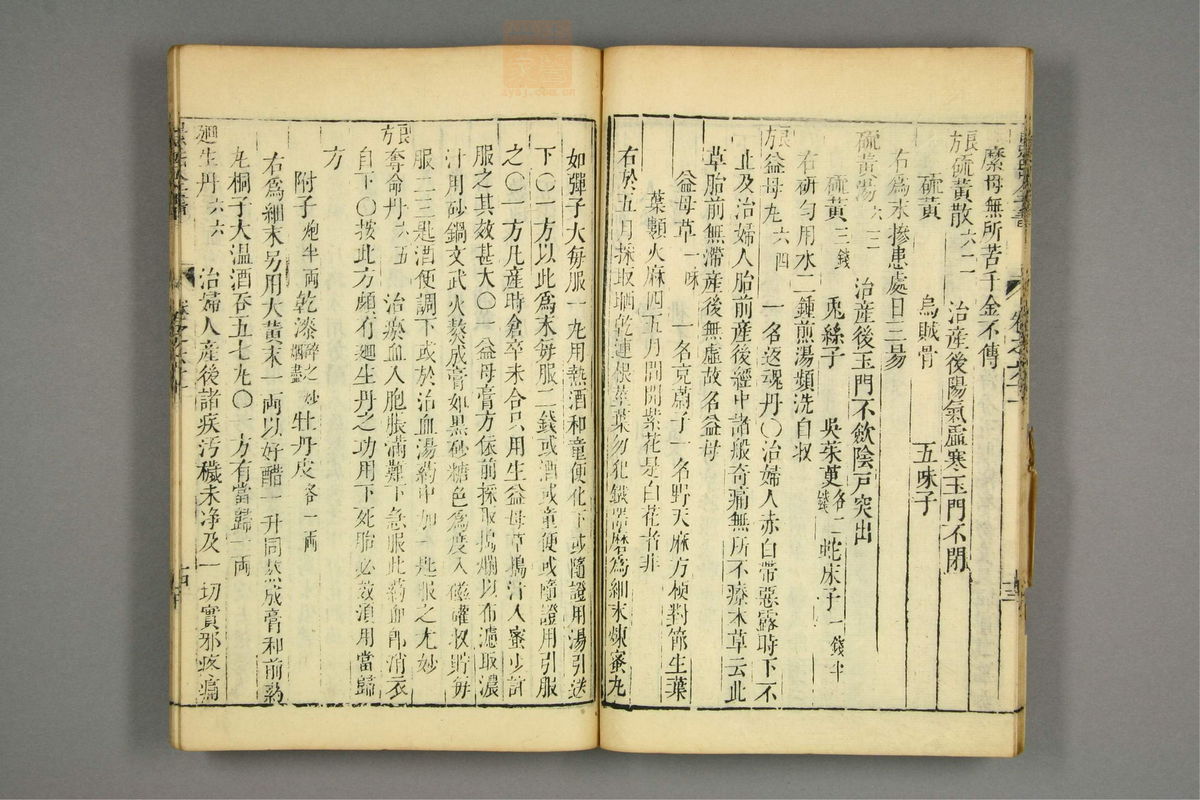 縻母無所苦千金不傳
良方硫黃散六二一 治產後陽氣虛寒玉門不閉
硫黃 烏賊骨 五味子
右爲末摻患處日三易
硫黃湯六二二 治產後玉門不歛陰戸突出
硫黃三錢 兎絲子 吳茱萸各二錢 蛇床子一錢半
右研勻用水二鍾煎湯頻洗自收
良方益母丸六四 一名返魂丹〇治婦人赤白帶惡露時下不
止及治婦人胎前產後經中諸般奇痛無所不療本草云此
草胎前無滯產後無虛故名益母
益母草一味 一名茺蔚子一名野天麻方梗對節生葉
葉類火麻四五月間開紫花是白花者非
右於五月採取晒乾連根莖葉勿犯鐵器磨爲細末煉蜜丸
如彈子大每服一丸用熱酒和童便化下或隨證用湯引送
下〇一方以此爲末每服二錢或酒或童便或隨證用引服
之〇一方凡產時倉卒未合只用生益母草搗汁入蜜少許
服之其效甚大〇益母膏方依前採取搗爛以布濾取濃
汁用砂鍋文武火熬成膏如黑砂糖色爲度入磁礶收貯每
服二三匙酒便調下或於治血湯藥中加一匙服之尤妙
良方奪命丹六五 治瘀血入胞脹滿難下急服此藥血卽消衣
自下〇按此方頗有廻生丹之功用下死胎必效須用當歸
方
附子炮半兩 乾漆碎之炒烟盡 牡丹皮各一兩
右爲細末另用大黃末一兩以好醋一升同熬成膏和前藥
丸桐子大温酒吞五七丸〇一方有當歸一兩
廻生丹六六 治婦人產後諸疾汚穢未净及一切實邪疼痛